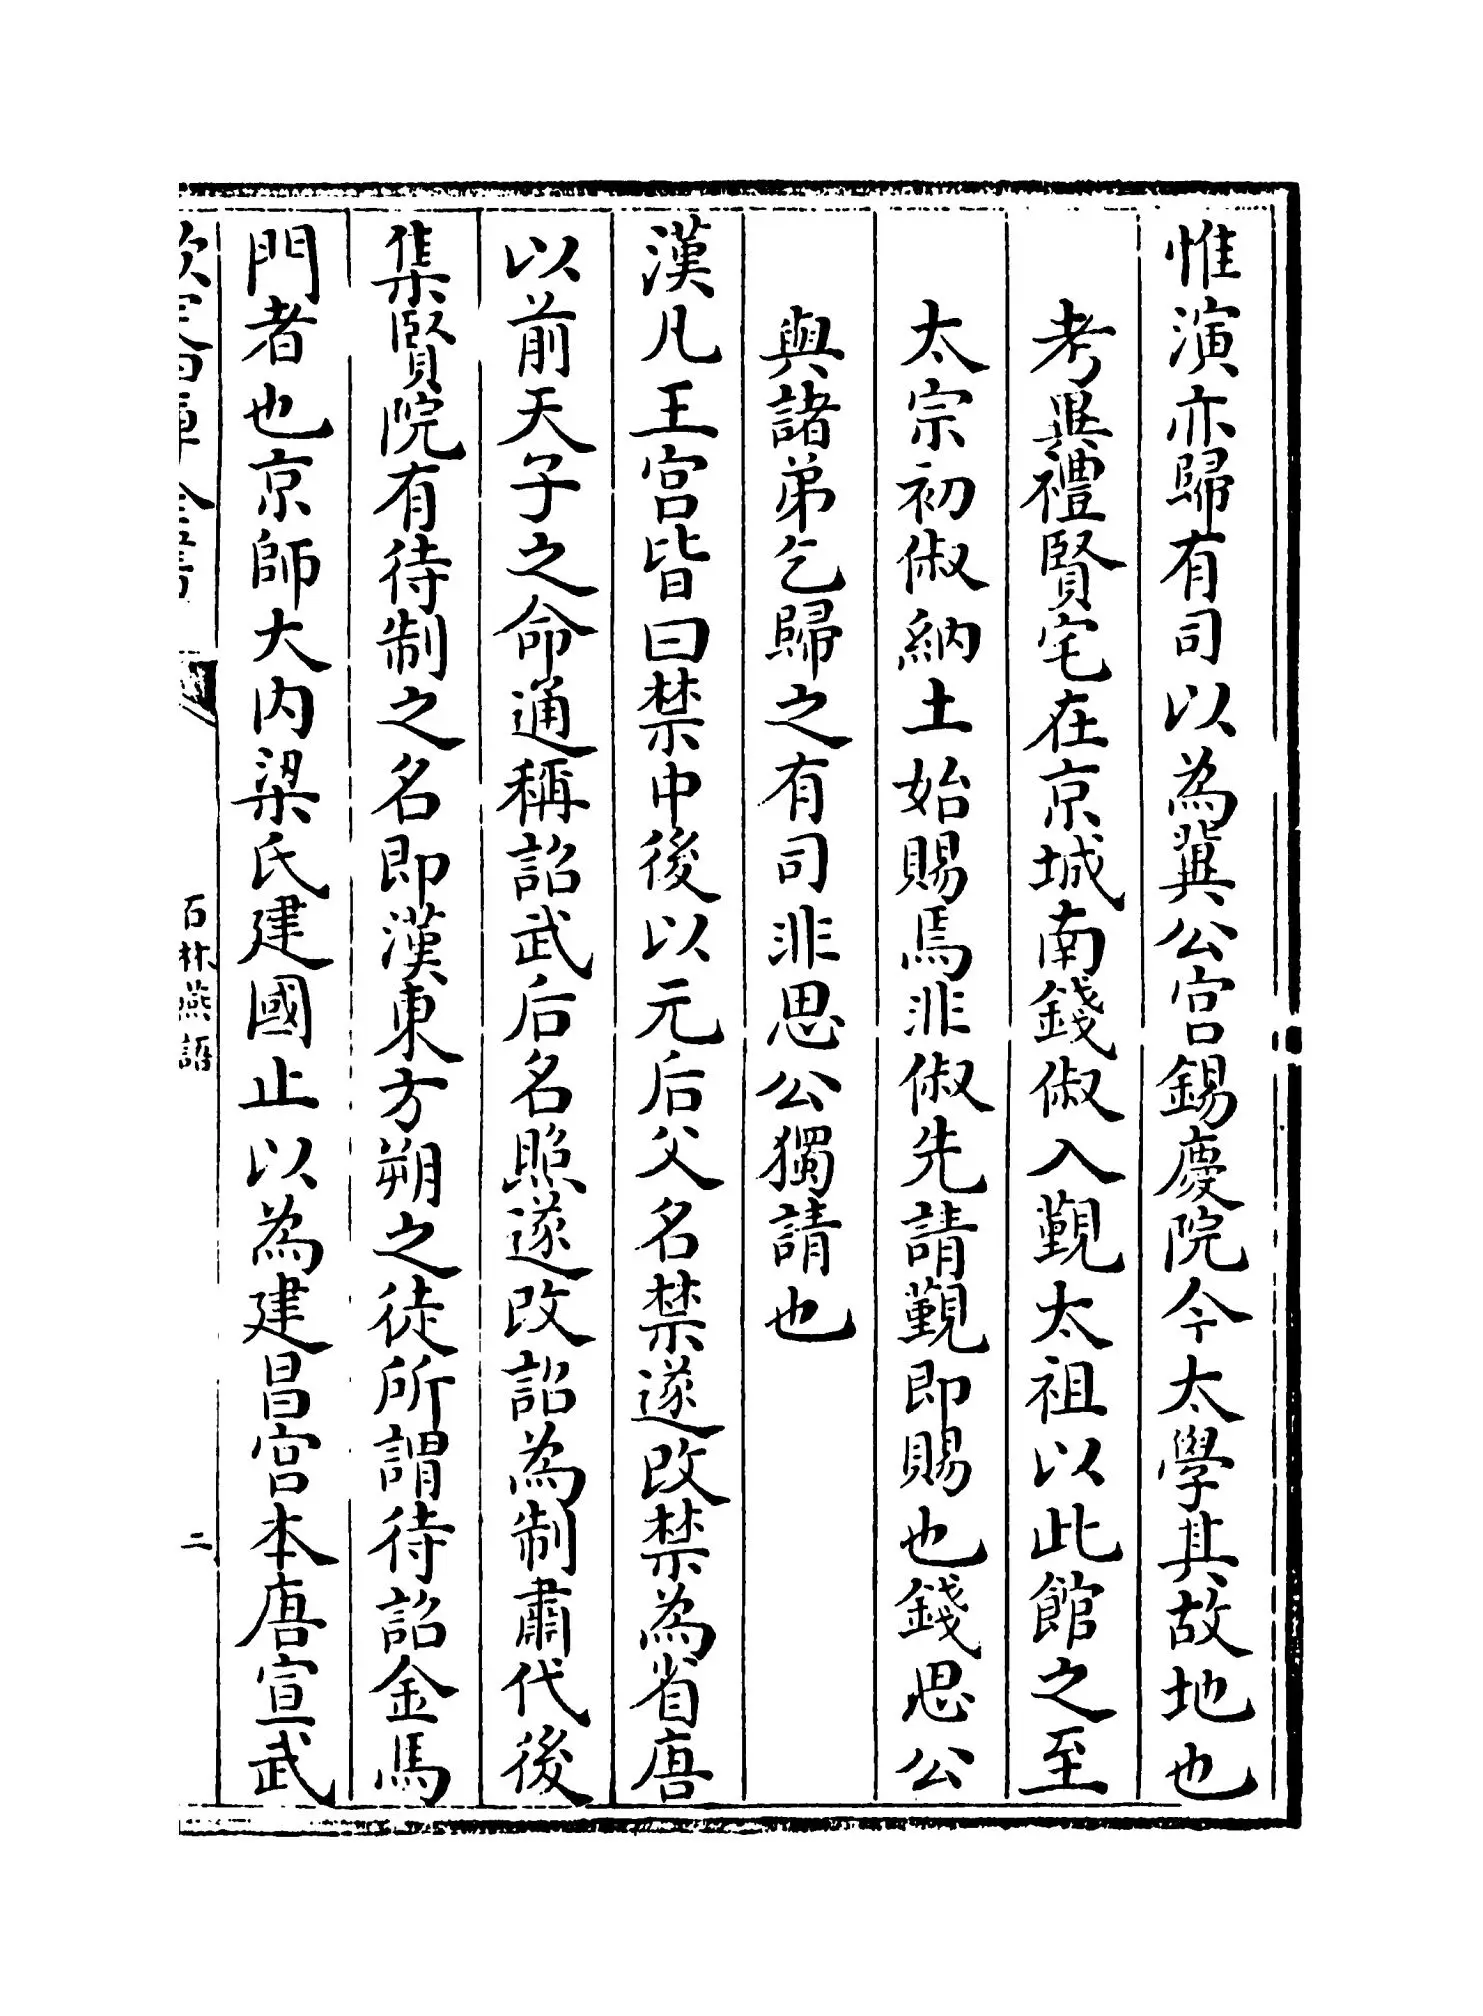 惟演亦歸有司以為冀公宮錫慶院今太學其故地也
考異禮賢宅在京城南錢俶入覲太祖以此館之至
太宗初俶納土始賜焉非俶先請覲即賜也錢思公
與諸弟乞歸之有司非思公獨請也
漢凡王宮皆曰禁中後以元后父名禁遂改禁為省唐
以前天子之命通稱詔武后名照遂改詔為制肅代後
集賢院有待制之名即漢東方朔之徒所謂待詔金馬
門者也京師大内梁氏建國止以為建昌宮本唐宣武
欽定四庫全書
石林燕語
二